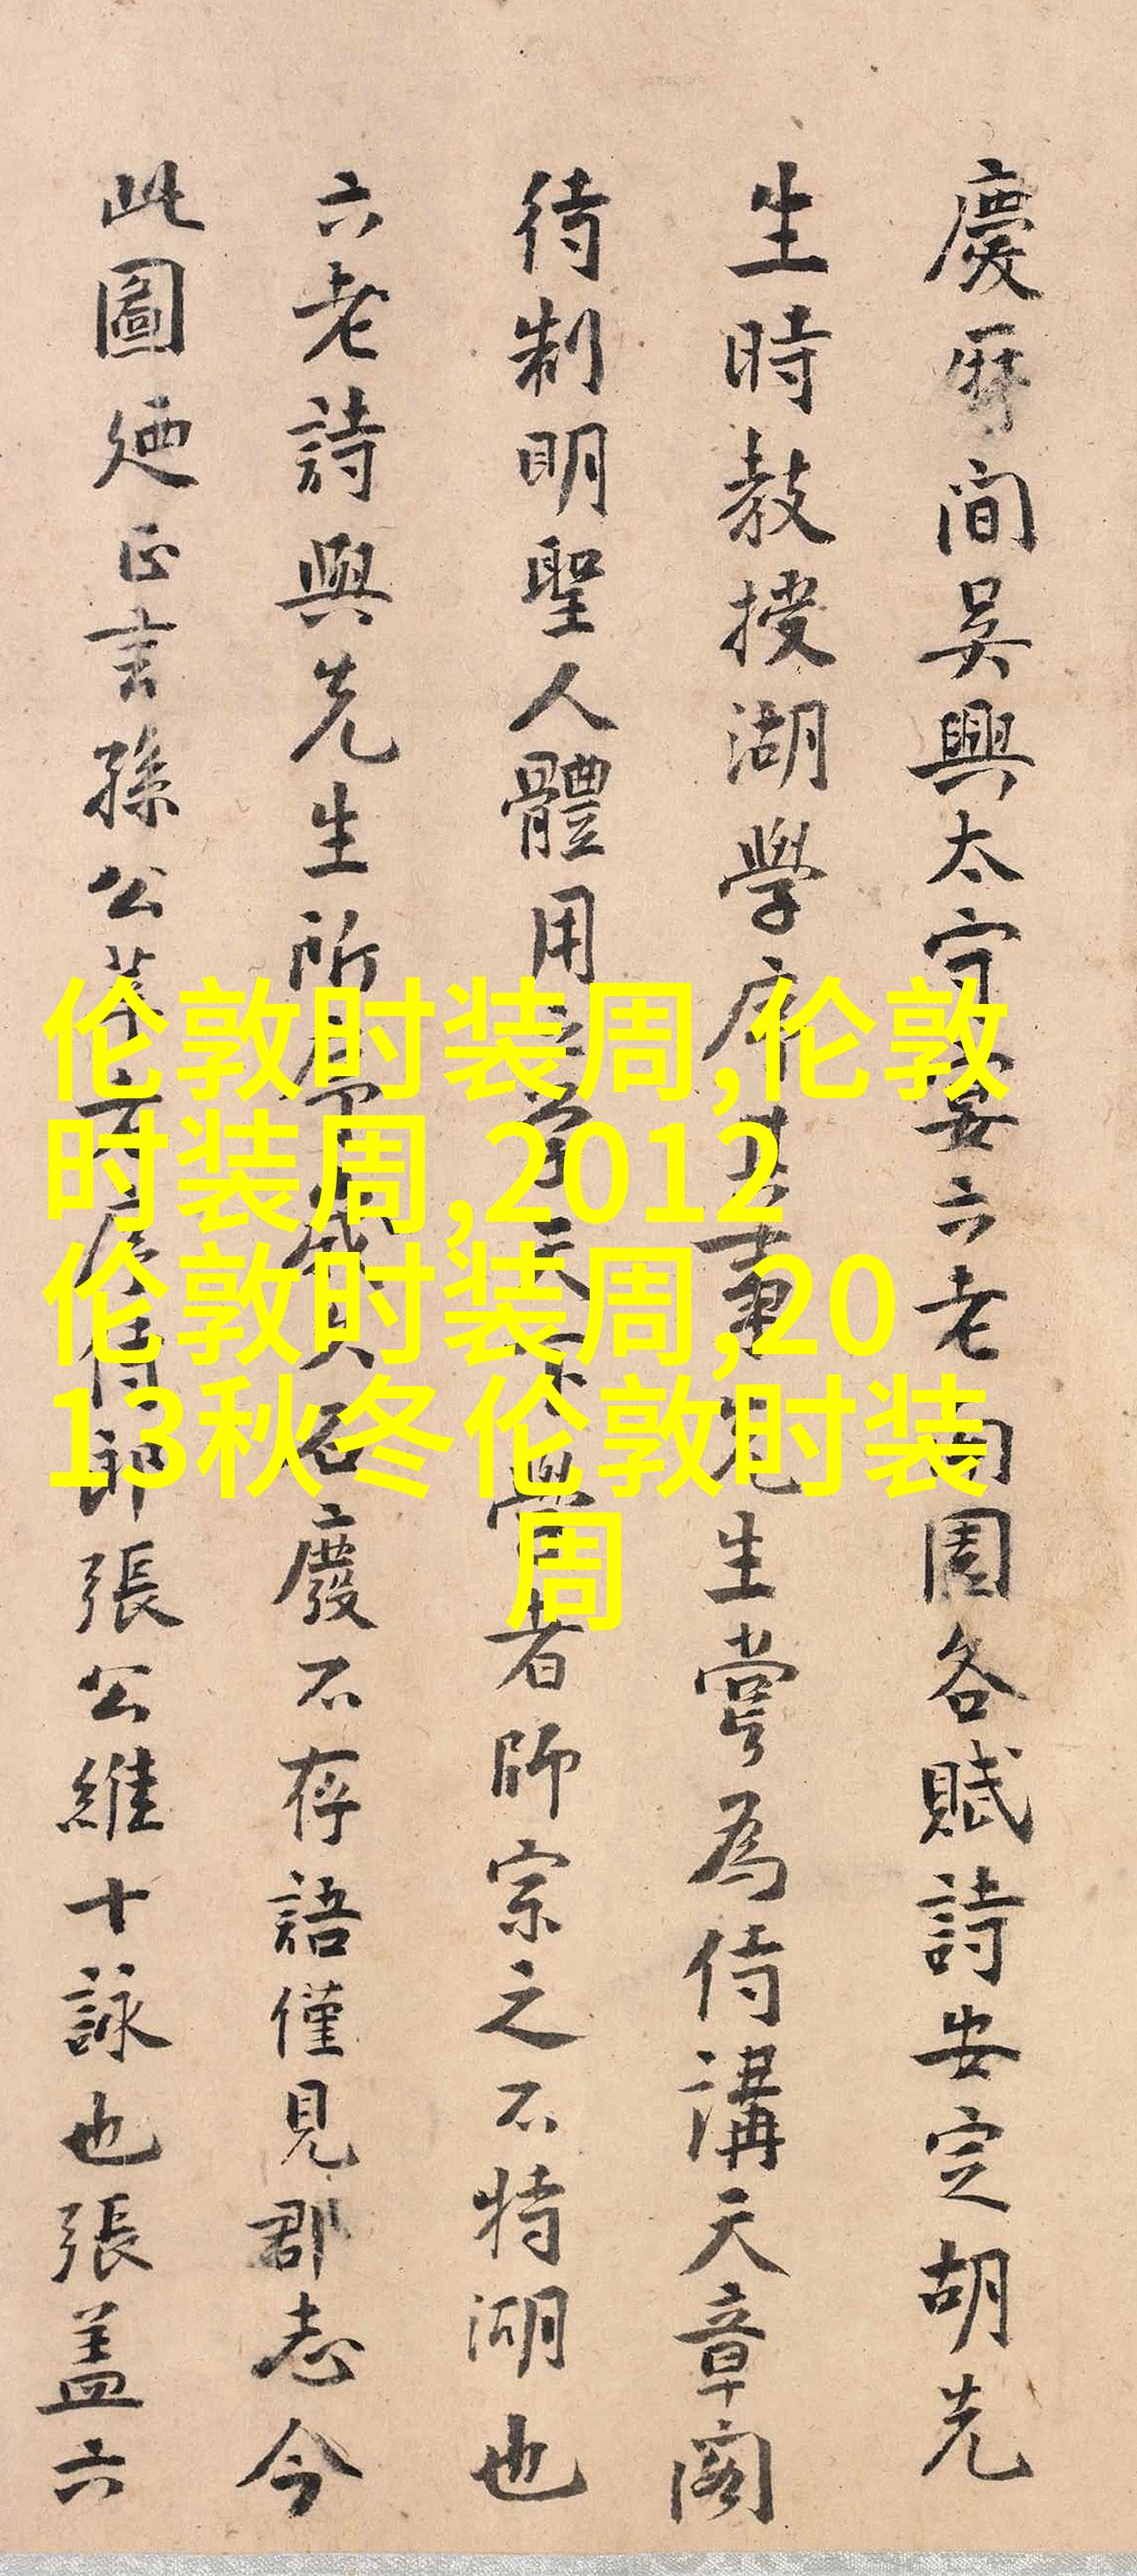 慶厤间吴興太守宴六老南園各賦詩安定胡先
生時教授湖學序其事先生嘗為侍講天章阁
待制明聖人體用之學天下學者師宗之不特湖也
六老詩與先生所序歲久石廢不存語僅見郡志今
此圖廼正言孫公莘老序侍郎張公維十詠也張盖六
伦敦时装周,伦敦
时装周,2012
伦敦时装周,20
13秋冬伦敦时装
周